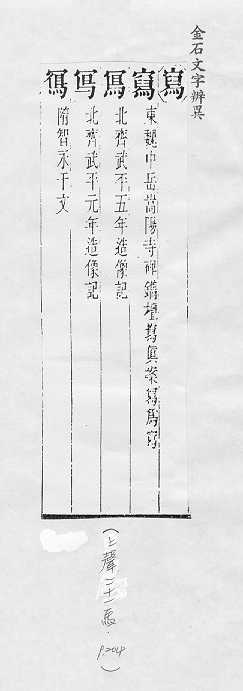 金石文字辨異
寫
寫 東魏中岳嵩陽寺碑鐫檀寫眞案寫爲寫
北齊武平五年造像記
北齊武平元年造像記
隋智永千文
(上聲二十一馬. p.204)